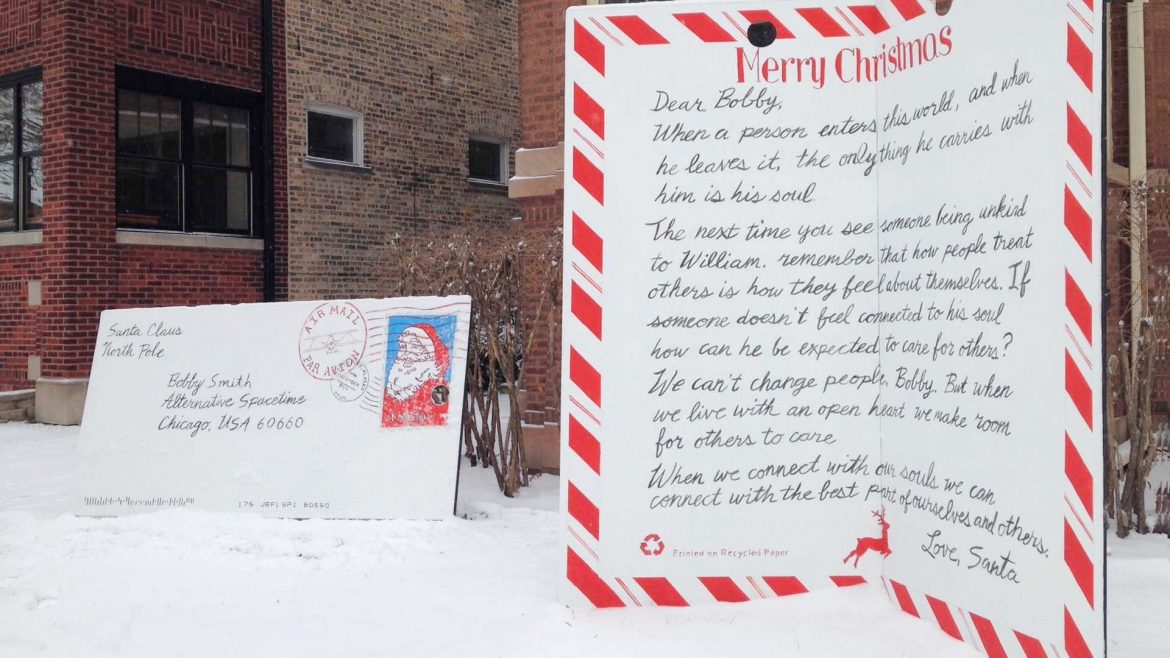 Santa Claus
North Pole
AIR MAIL
PAR AVION
Bobby Smith
Alternative Spacetime
Chicago, USA 60660
Merry Christmas
Dear Bobby,
When a person enters this world, and when
he leaves it, the only thing he carries with
him is his soul
The next time you see someone being unkind
to William, remember that how people treat
others is how they feel about themselves. If
someone doesn't feel connected to his soul
how can he be expected to care for others?
We can't change people, Bobby. But when
we live with an open heart we make room
for others to care
When we connect with our souls we can
connect with the best part of ourselves and others.
Love, Santa
Printed on Recycled Paper